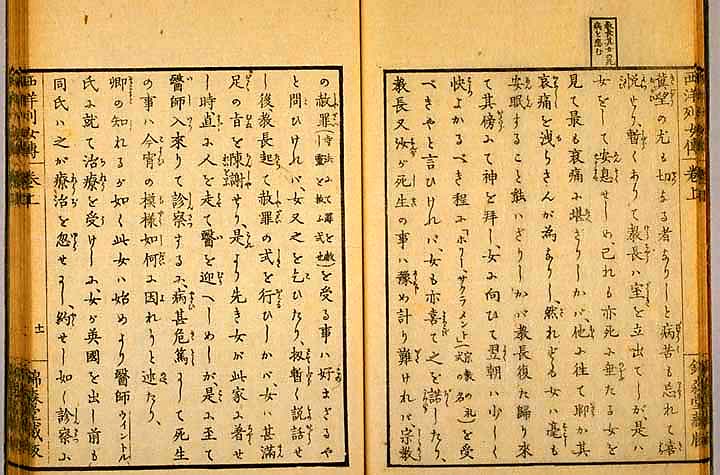 西洋列女傳 卷上
冀望の尤も切なる者ありしと病苦も忘れて喜
悦せり、暫くありて教長ハ室を立出てしが是ハ
女をして安息せしめ、己れも亦死に垂たる女を
見て最も哀痛に堪ざりしかバ、他に往て聊か其
哀痛を洩らさんが為なりし、然れども女ハ毫も
安眠すること能ハざりしかバ教長復た歸り來
て其傍にて神を拜し、女に向ひて翌朝ハ少しく
快よかるべき程に「ホリー、サクラメント」(宗教の式の名)を受
べきやと言ひけれバ、女も亦喜て之を諾したり、
教長又汝が死生の事ハ豫め計り難けれバ宗教
の赦罪(寺法にて罪を赦し)を受る事ハ好まざるや
と問ひけれバ、女又之を乞ひたり、扨暫く説話せ
し後、教長起て赦罪の式を行ひしかバ、女ハ甚滿
足の言を陳謝せり、是より先き女が此家に着せ
し時直に人を走て醫を迎へしめしが是に至て
醫師入來りて診察するに、病甚危篤にして死生
の事ハ今宵の模樣如何に因れりと述たり、
卿の知れるが如く此女ハ始めより醫師ウィントル、
氏に就て治療を受けしに、女が英國を出し前も
同氏ハ之が療治を忽せにし、約せし如く診察に
西洋列女傳 卷上 十一